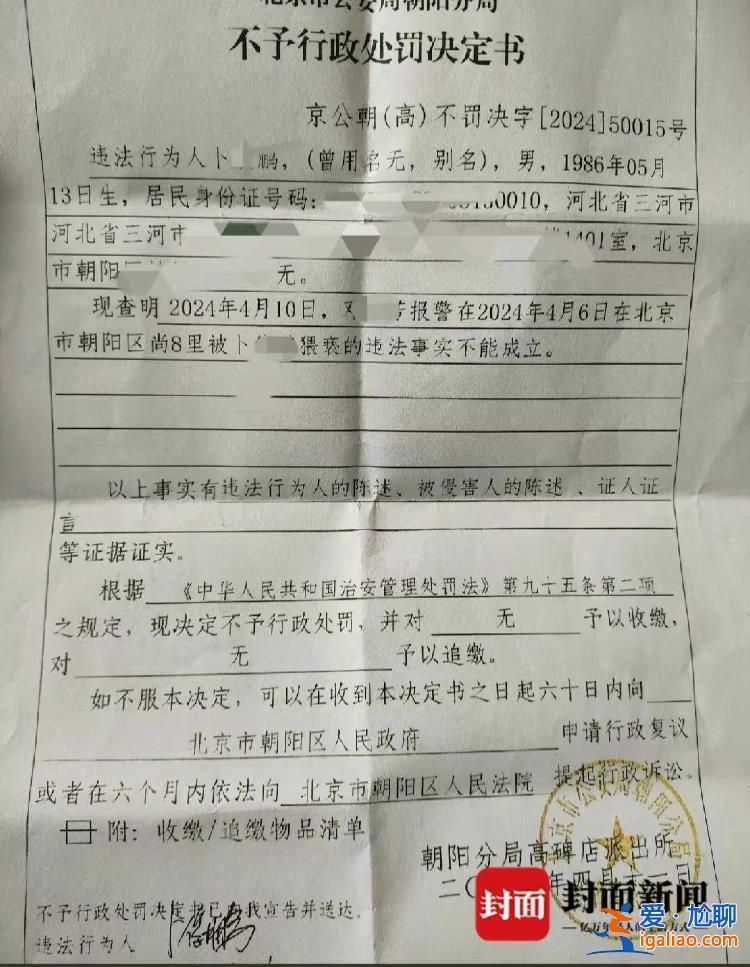 北京市公安局朝阳分局
不予行政处罚决定书
京公朝(高)不罚决字[2024]50015号
违法行为人卜 鹏,(曾用名无,别名),男,1986年05月
13日生,居民身份证号码: 0010,河北省三河市
河北省三河市 1401室,北京
市朝阳 无。
现查明 2024年4月10日, 报警在2024年4月6日在北京
市朝阳区尚8里被卜 猥亵的违法事实不能成立。
以上事实有违法行为人的陈述、被侵害人的陈述、证人证
言
等证据证实。
根据 《中华人民共和国治安管理处罚法》第九十五条第二项
之规定,现决定不予行政处罚,并对 无 予以收缴,
对 无 予以追缴。
如不服本决定,可以在收到本决定书之日起六十日内向
北京市朝阳区人民政府 申请行政复议
或者在六个月内依法向 北京市朝阳区人民法院 提起行政诉讼。
附:收缴/追缴物品清单
朝阳分局高碑店派出所
二〇 年四月 日
不予行政处罚决定书已向我宣告并送达。
违法行为人
封面 封面新闻
爱·尬聊
igaliao.com